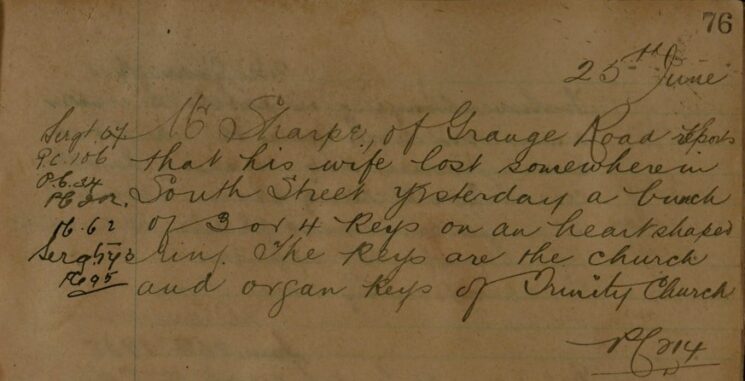 76
25th June
Mr Sharpe, of Grange Road reports
that his wife lost somewhere in
South Street yesterday a bunch
of 3 or 4 Keys on an heart shaped
ring. The Keys are the church
and organ Keys of Trinity Church
PC 214
Sergt. 67
P.C. 106
P.C. 34
PC 202.
PC. 62
Sergt
PC 95